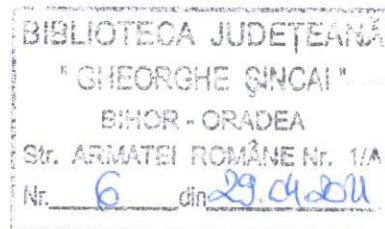 BIBLIOTECA JUDEŢEANĂ
"GHEORGHE ŞINCAI"
BIHOR - ORADEA
Str. ARMATEI ROMÂNE Nr. 1/A
Nr. 6 din 29.04.2011